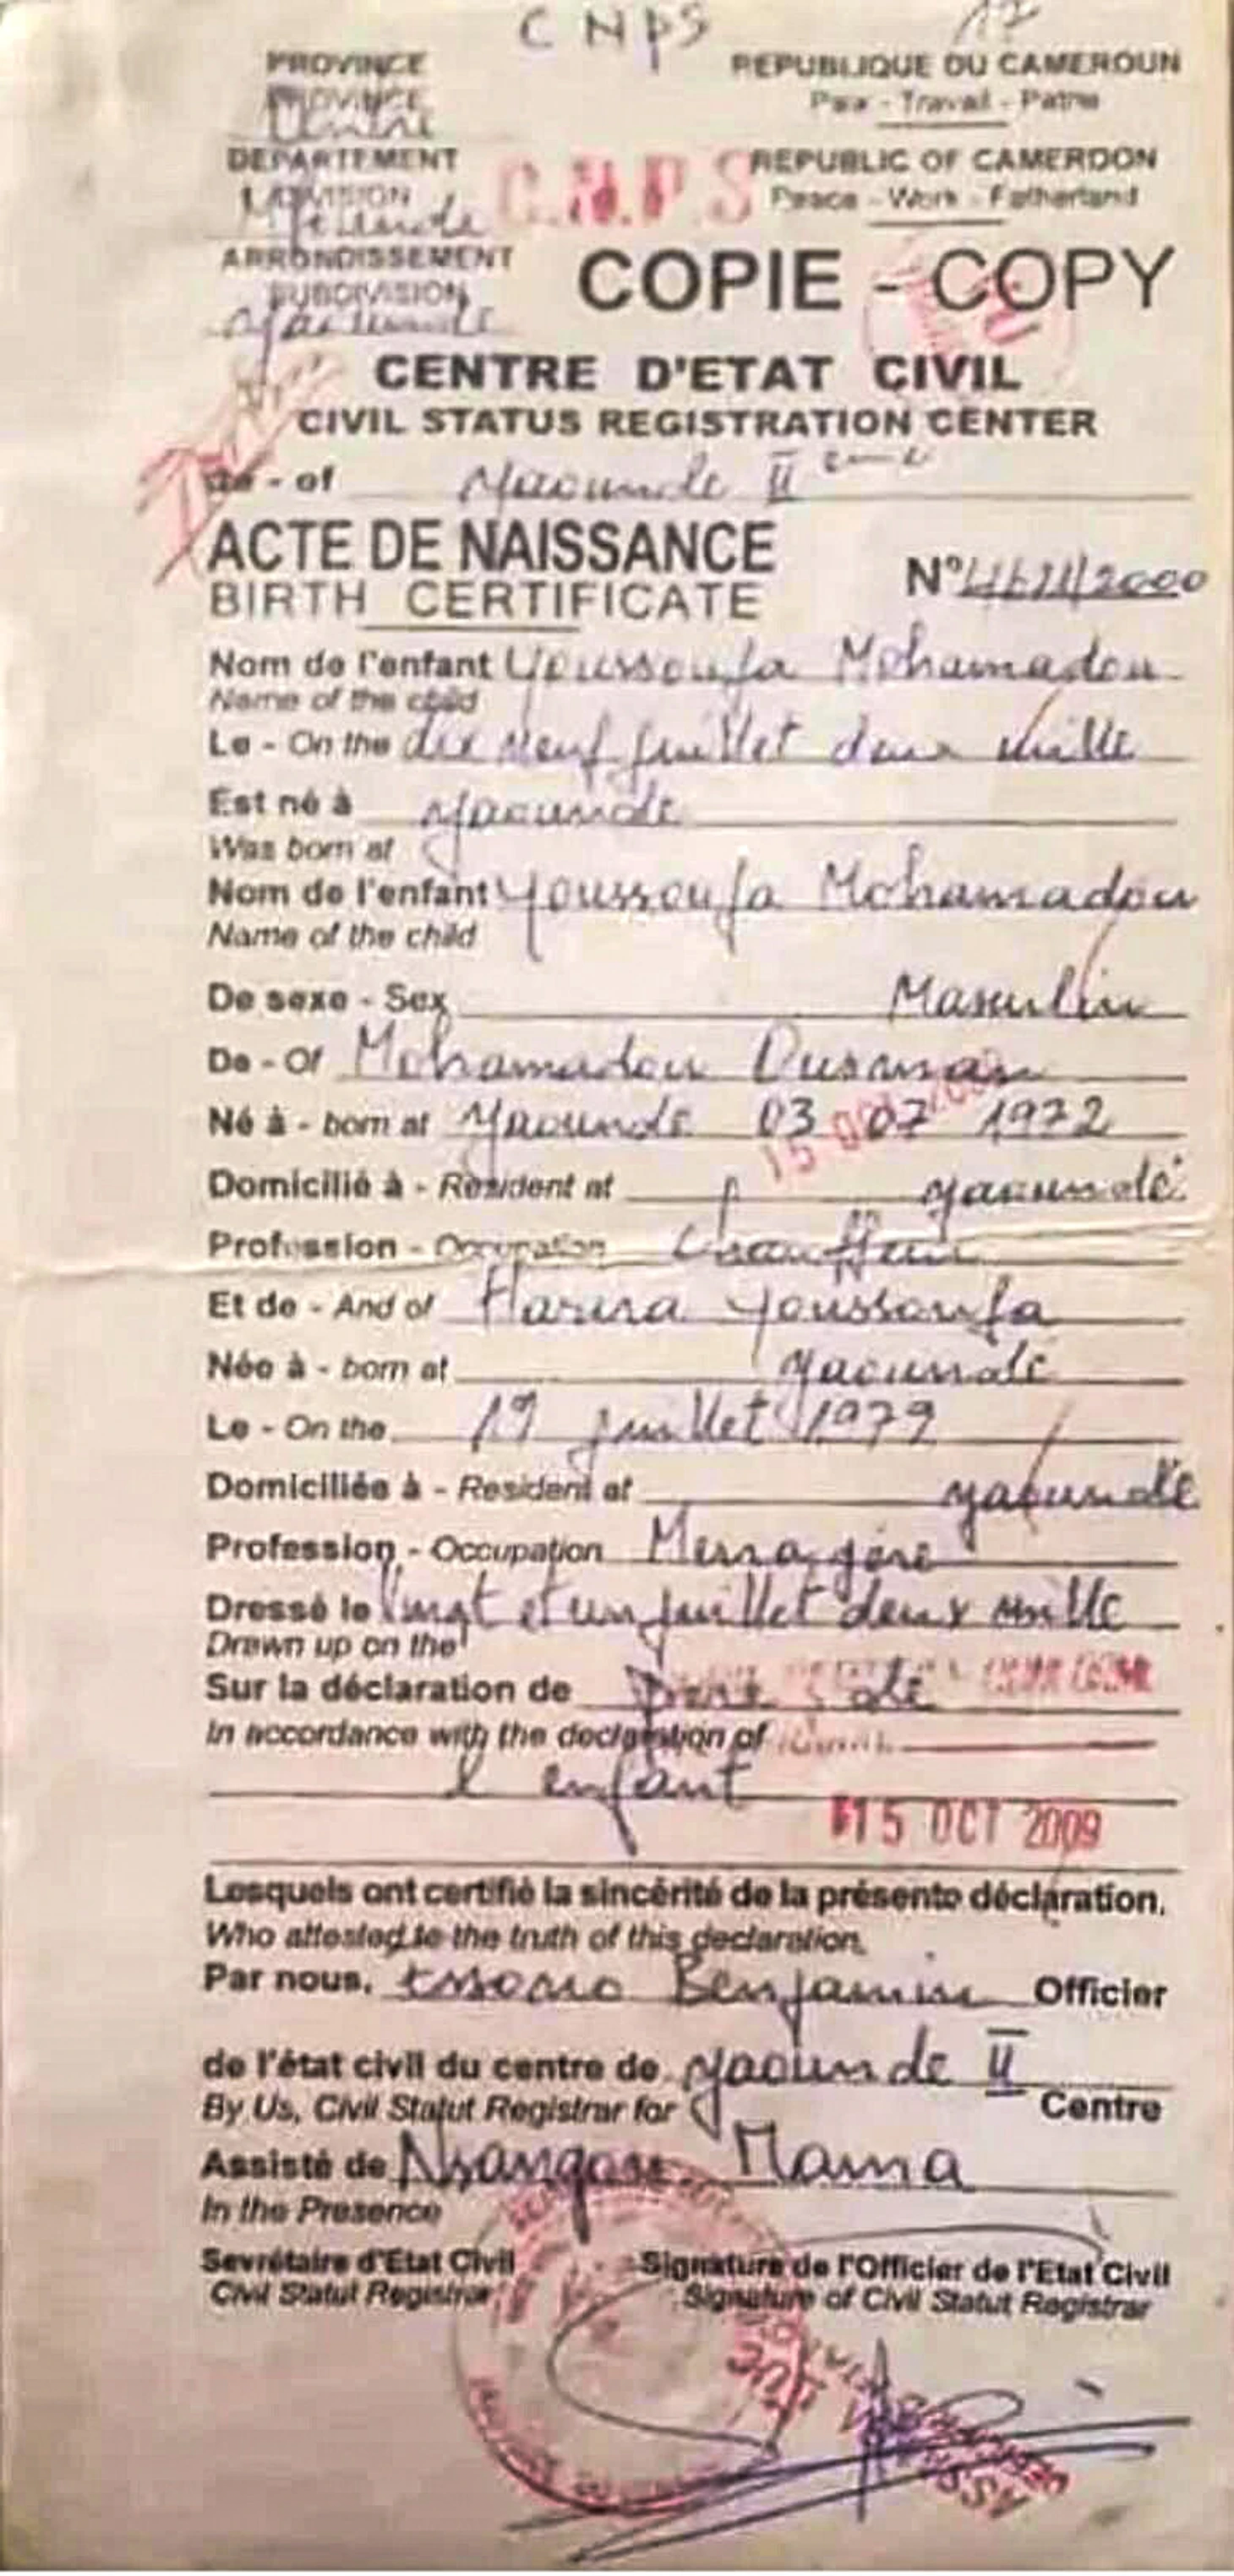 CNPS
PROVINCE
PROVINCE
Centre
REPUBLIQUE DU CAMEROUN
Paix - Travail - Patrie
DEPARTEMENT
DIVISION
C.N.P.S
REPUBLIC OF CAMERDON
Peace - Work - Fatherland
ARRONDISSEMENT
SUBDIVISION
Yaounde
COPIE - COPY
CENTRE D'ETAT CIVIL
CIVIL STATUS REGISTRATION CENTER
De - of Yaounde II eme
ACTE DE NAISSANCE
BIRTH CERTIFICATE
N° /2000
Nom de l'enfant Youssoufa Mohamadou
Name of the child
Le - On the dix neuf juillet deux mille
Est né à Yaounde
Was born at
Nom de l'enfant Youssoufa Mohamadou
Name of the child
De sexe - Sex Masculin
De - Of Mohamadou Ousman
Né à - born at Yaounde 03 07 1972
Domicilié à - Resident at yaoundé
Profession - Occupation Chauffeur
Et de - And of Youssoufa
Née à - born at Yaoundé
Le - On the 19 juillet 1979
Domiciliée à - Resident at yaoundé
Profession - Occupation Menagère
Dressé le Vingt et un juillet deux mille
Drawn up on the
Sur la déclaration de Père de
In accordance with the declaration of
l enfant
15 OCT 2009
Lesquels ont certifié la sincérité de la présente déclaration,
Who attested to the truth of this declaration,
Par nous, Essomo Benjamin Officier
de l'état civil du centre de yaounde II
By Us, Civil Statut Registrar for Centre
Assisté de Mama
In the Presence
Sevrétaire d'Etat Civil
Civil Statut Registrar
Signature de l'Officier de l'Etat Civil
Signature of Civil Statut Registrar